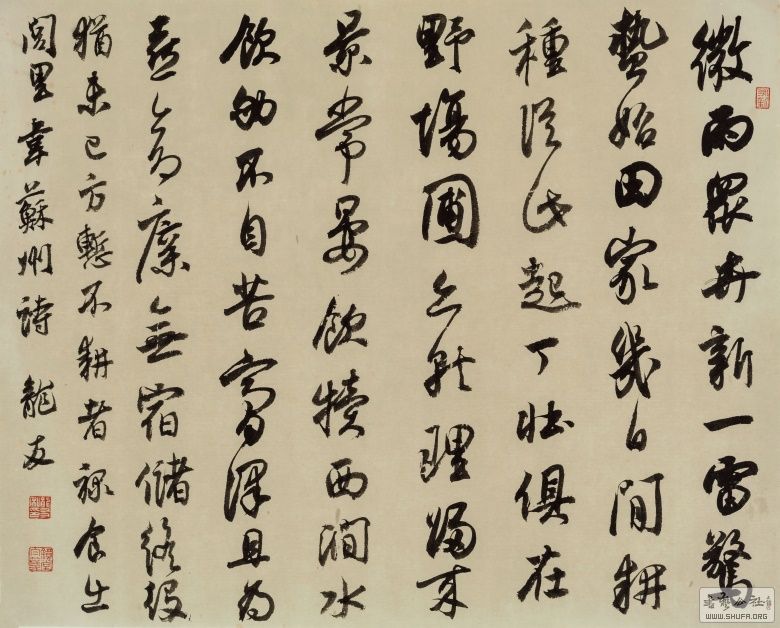 微雨眾卉新一雷驚
蟄始田家幾日間耕
種從此起丁壯俱在
野塲圃亦就理歸來
景常晏飲犢西澗水
飢劬不自苦膏澤且為
喜倉廩無宿儲徭役
猶未已方慙不耕者祿食出
閭里韋蘇州詩 龍友
书艺公社
WWW.SHUFA.ORG